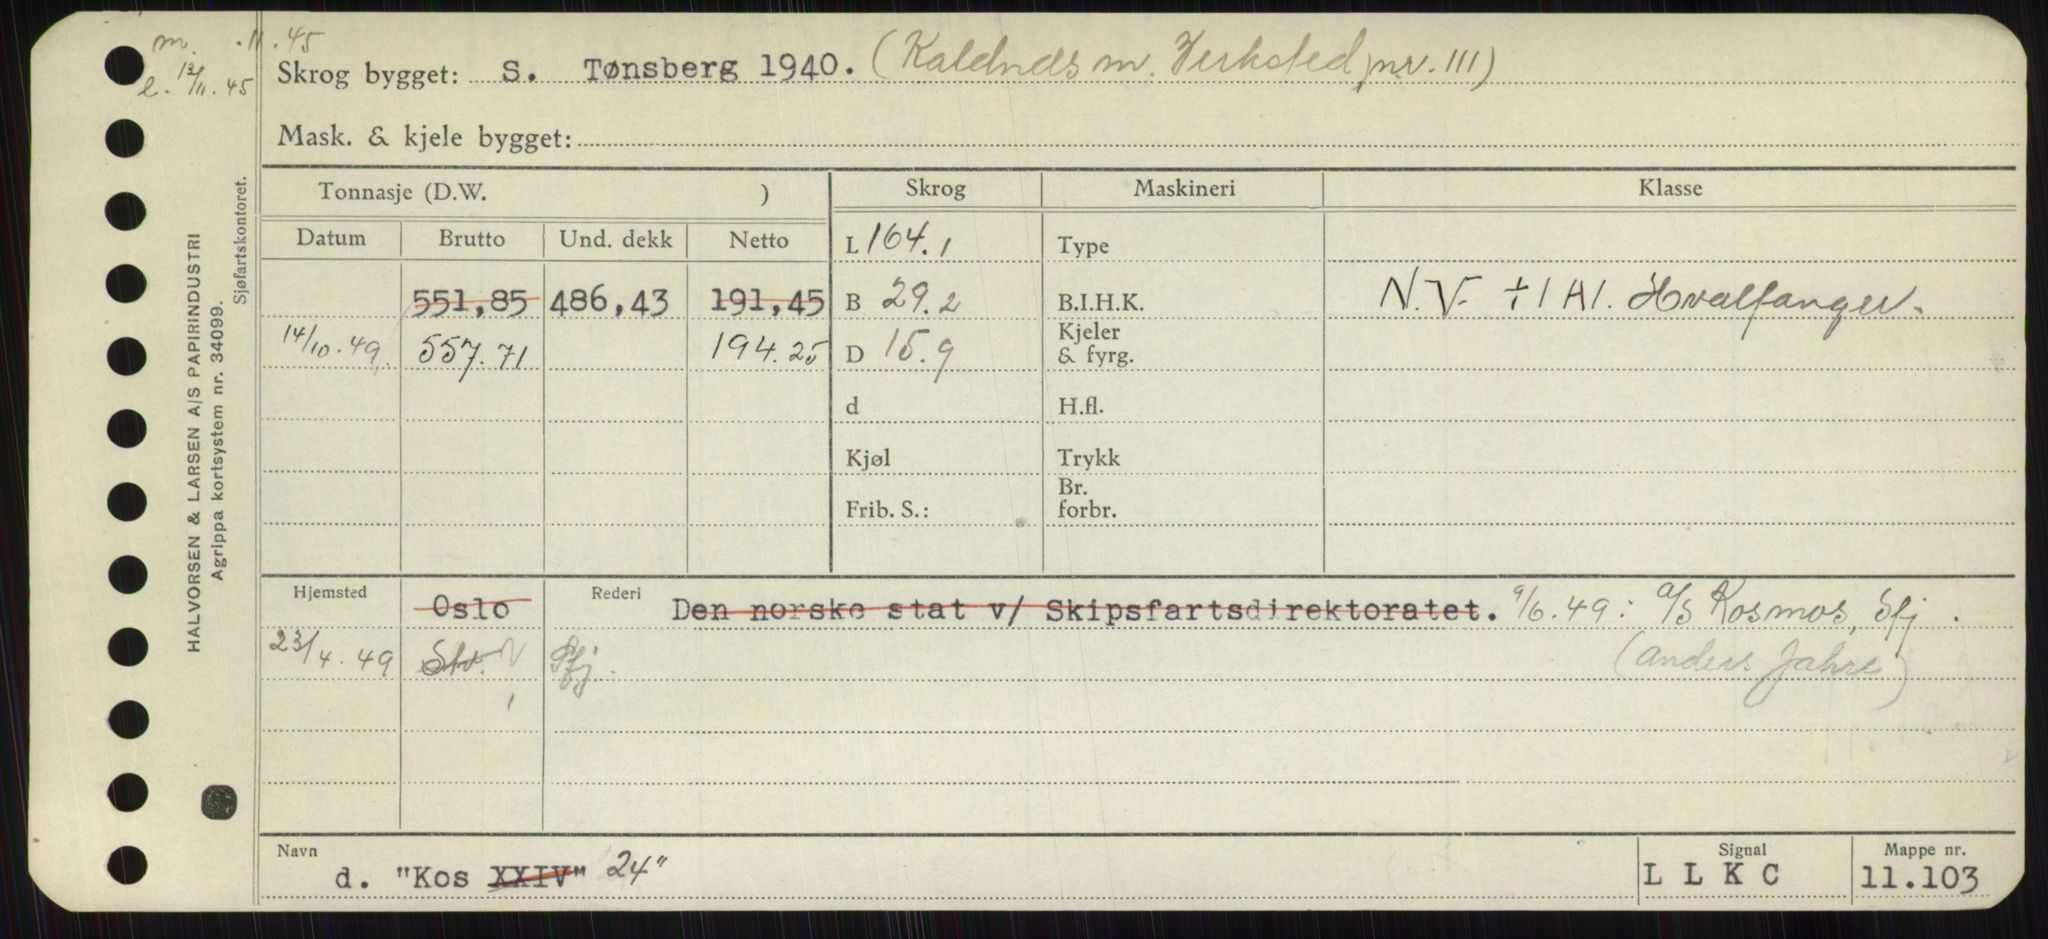 m. .11.45
l. 13/11.45
Skrog bygget: S. Tønsberg 1940. (Kaldnes m. Verksted, nr. 111)
Mask. & kjele bygget:
HALVORSEN & LARSEN A/S PAPIRINDUSTRI
Agrippa kortsystem nr. 34099.
Sjøfartskontoret.
Tonnasje (D.W. )
Skrog Maskineri Klasse
Datum Brutto Und. dekk Netto
L 164.1 Type
551,85 486,43 191,45 B 29.2 B.I.H.K. N.V. +1A1. Hvalfanger.
14/10.49. 557.71 194.25 D 15.9 Kjeler & fyrg.
d H.fl.
Kjøl Trykk
Frib. S.: Br. forbr.
Hjemsted Oslo Rederi Den norske stat v/ Skipsfartsdirektoratet. 9/6.49: A/S Kosmos, Sfj.
23/4.49 Sfj. (Anders Jahre)
Navn
d. "Kos XXIV" 24"
Signal
L L K C
Mappe nr.
11.103